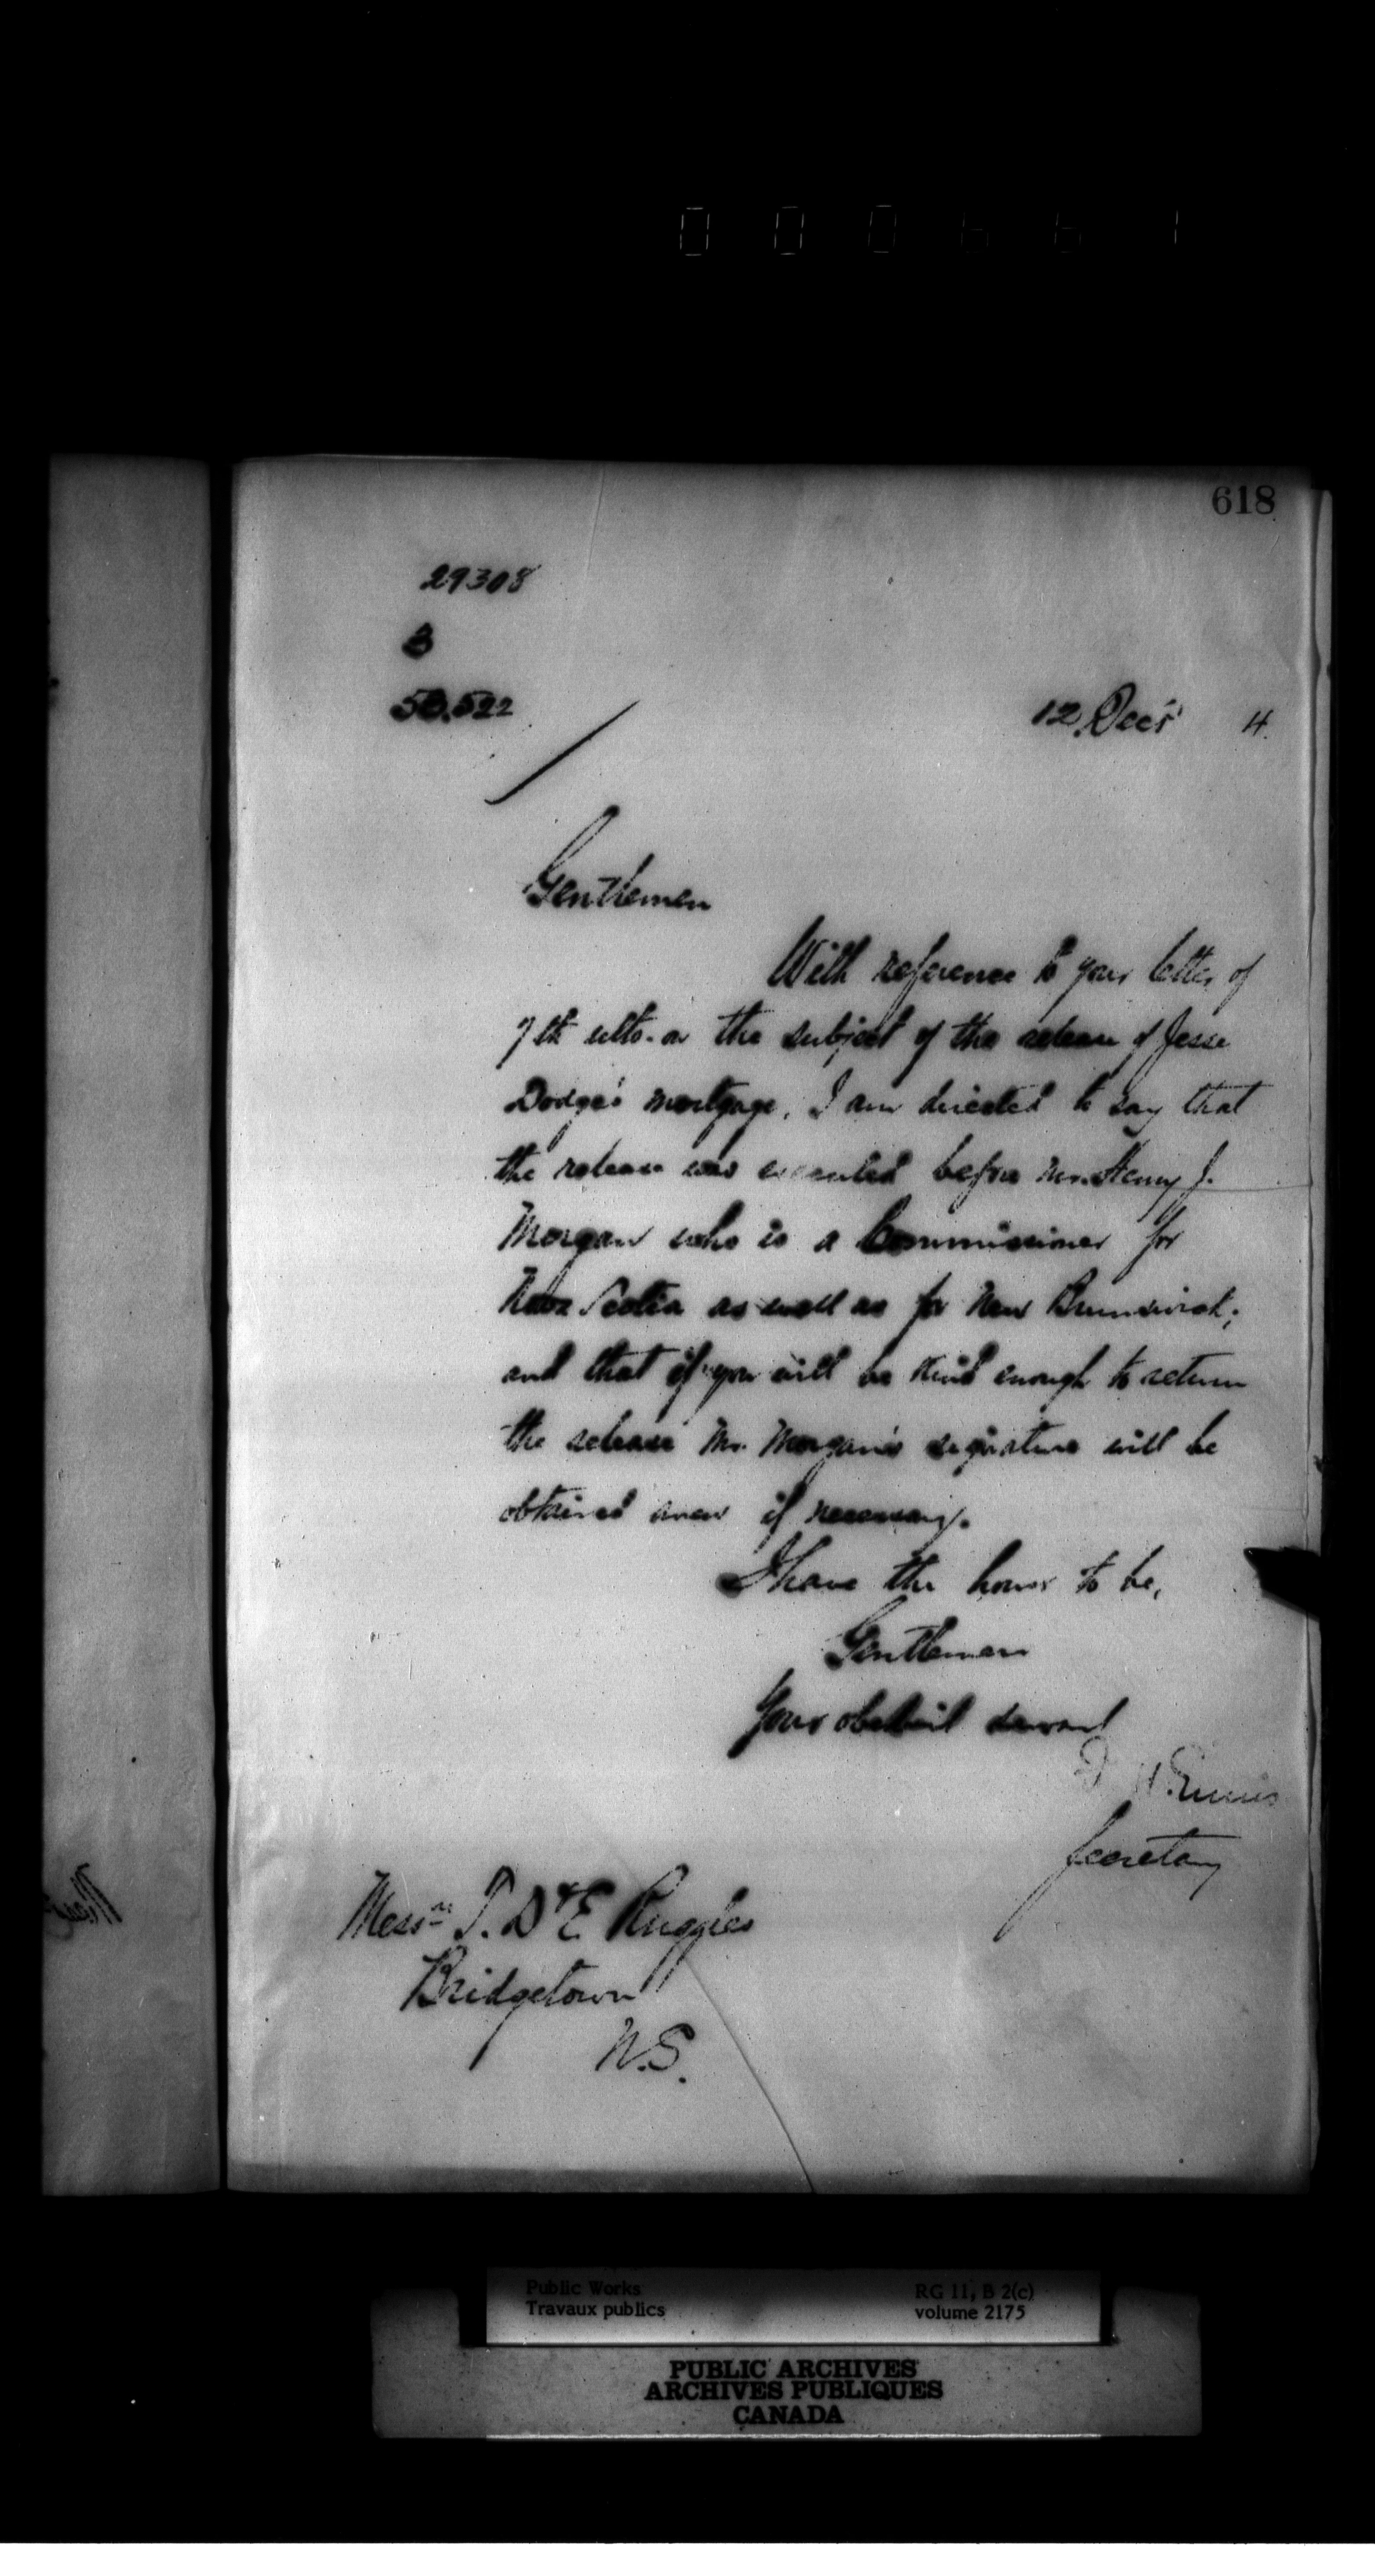 000661
618
29308
B
58.522
12 Decr 4.
Gentlemen
With reference to your letter of
7th ulto. on the subject of the release of Jesse
Dodge's mortgage, I am directed to say that
the release was executed before Mr. Henry J.
Morgan who is a Commissioner for
Nova Scotia as well as for New Brunswick;
and that if you will be kind enough to return
the release Mr. Morgan's signature will be
obtained anew if necessary.
I have the honor to be,
Gentlemen
Your obedient servant
H. Ennis
Secretary
Messrs T. D & E Ruggles
Bridgetown
N.S.
Public Works
Travaux publics
RG 11, B 2(c)
volume 2175
PUBLIC ARCHIVES
ARCHIVES PUBLIQUES
CANADA